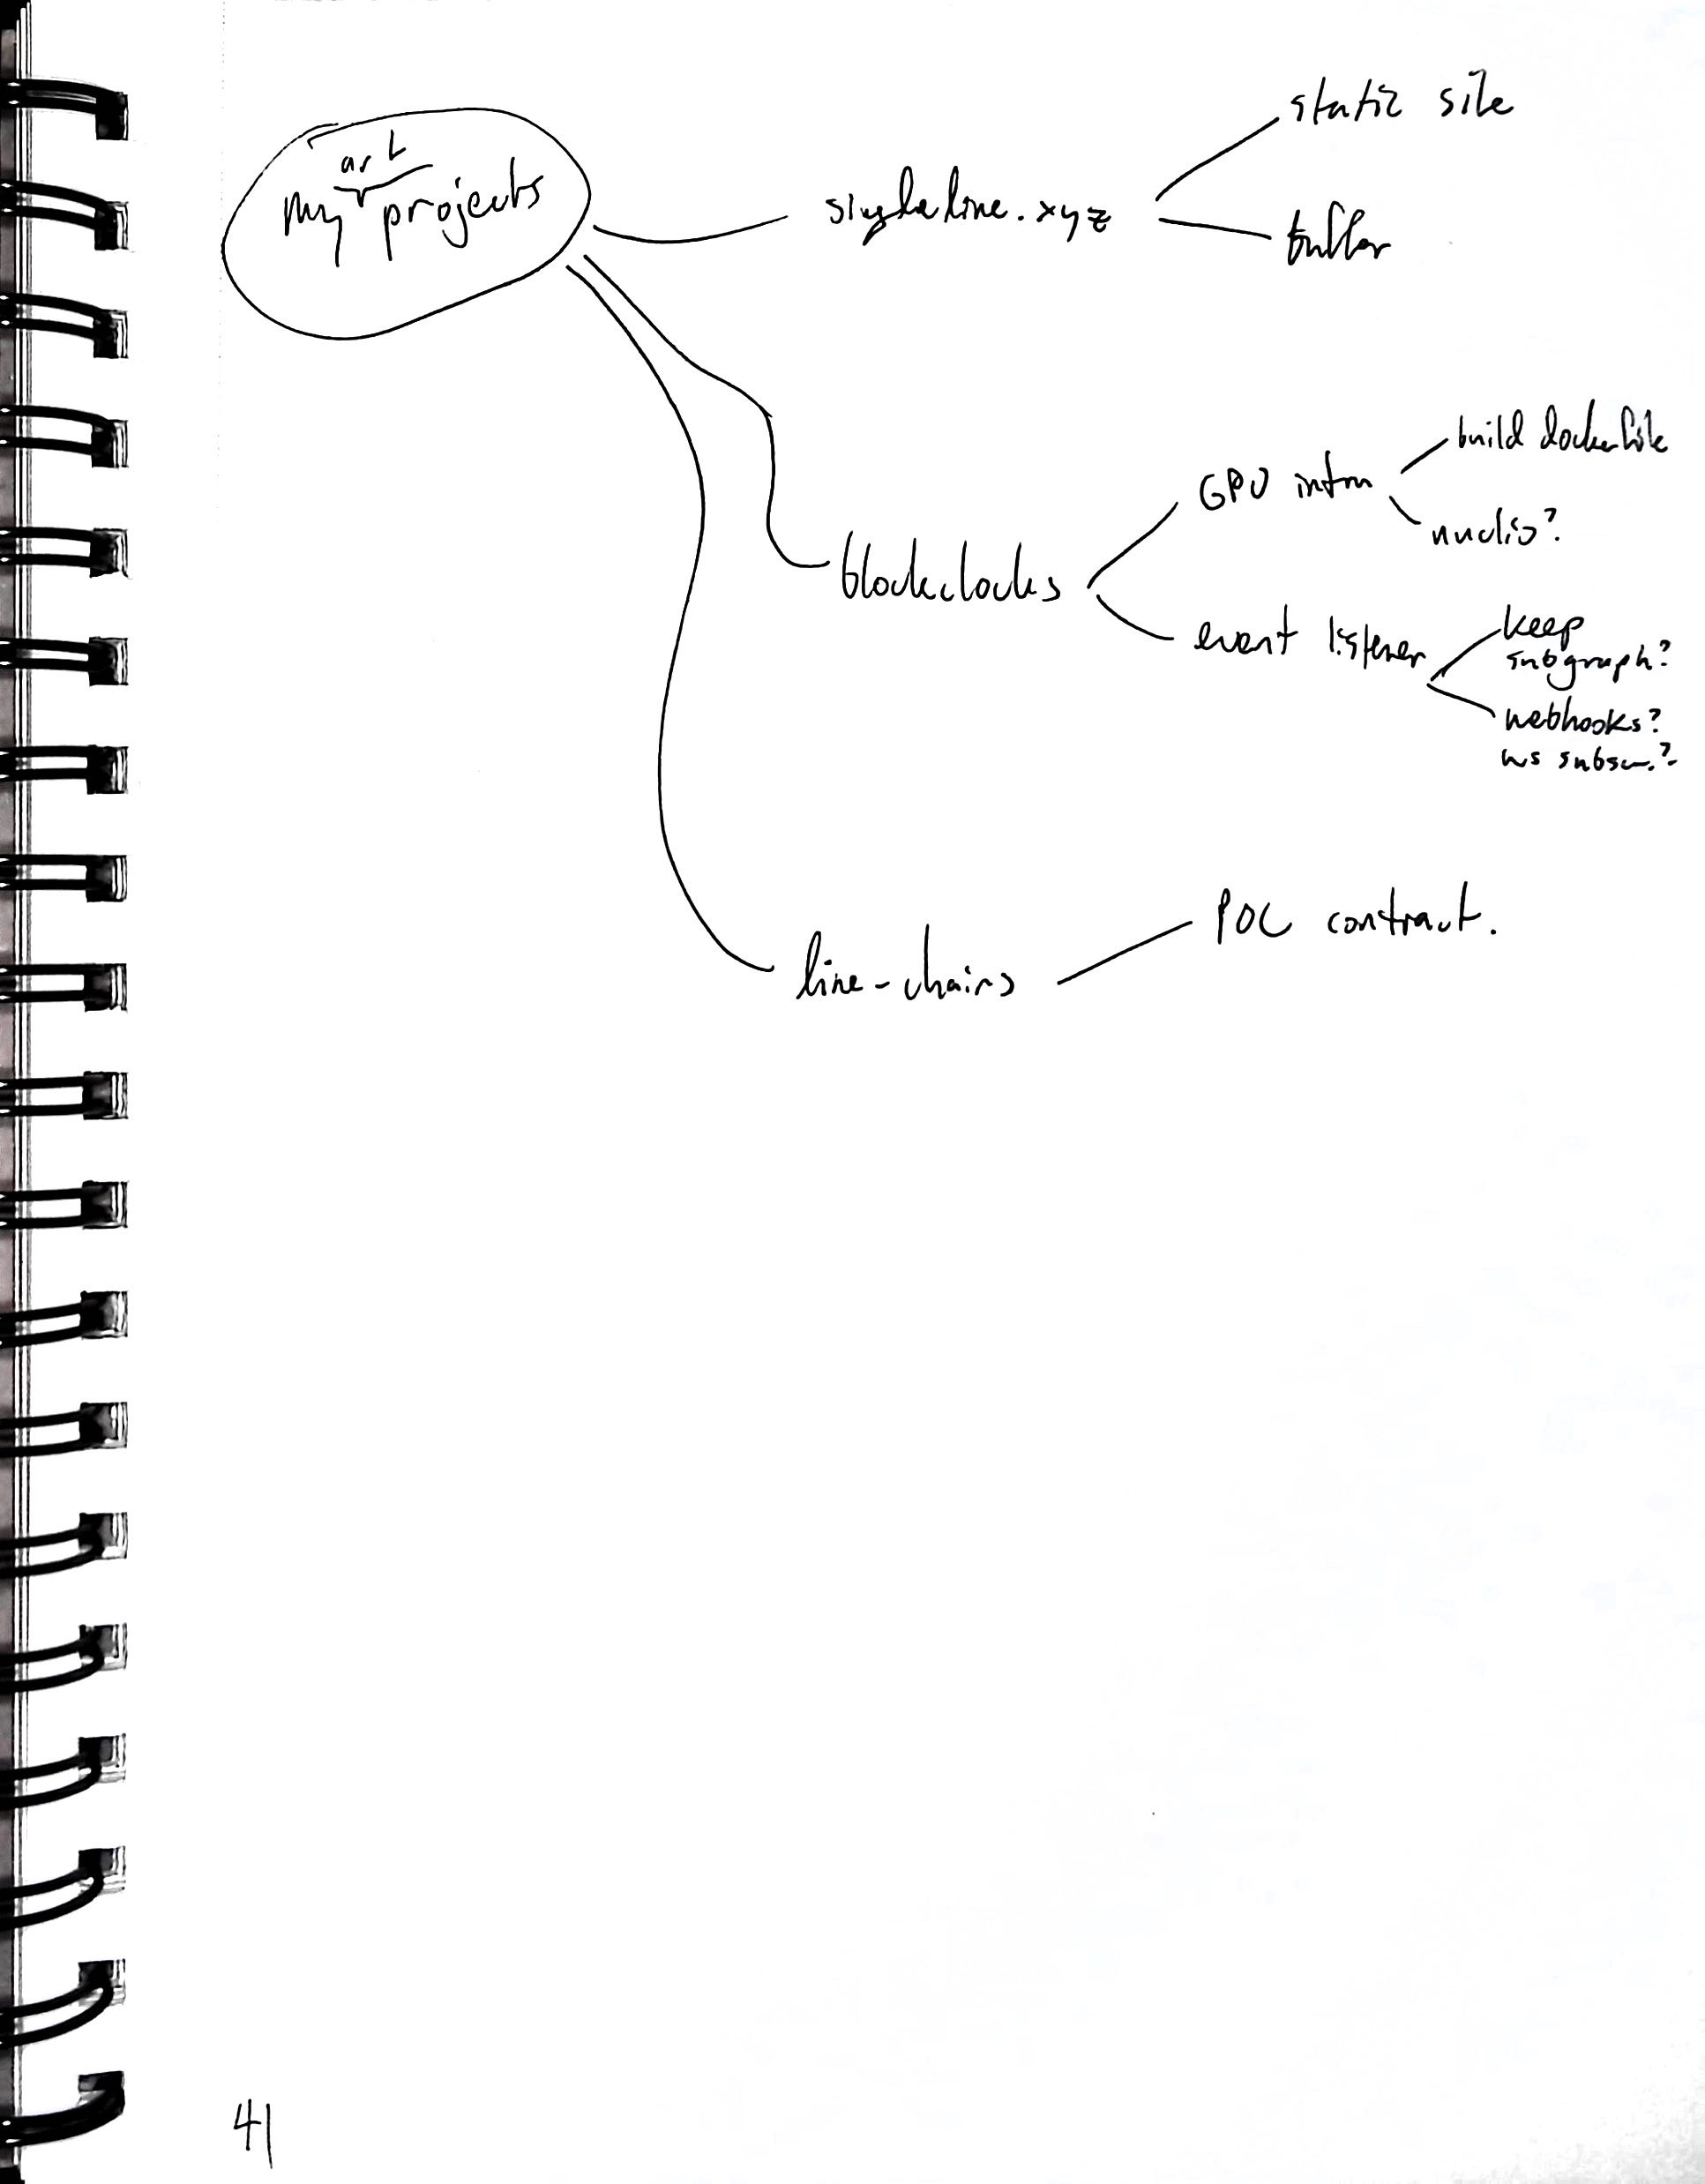 my art projects
singleline.xyz
static site
buffer
blockclocks
GPU infra
build dockerfile
nuclio?
event listener
keep
subgraph?
webhooks?
ws subscr.?
line-chairs
POC contract.
41